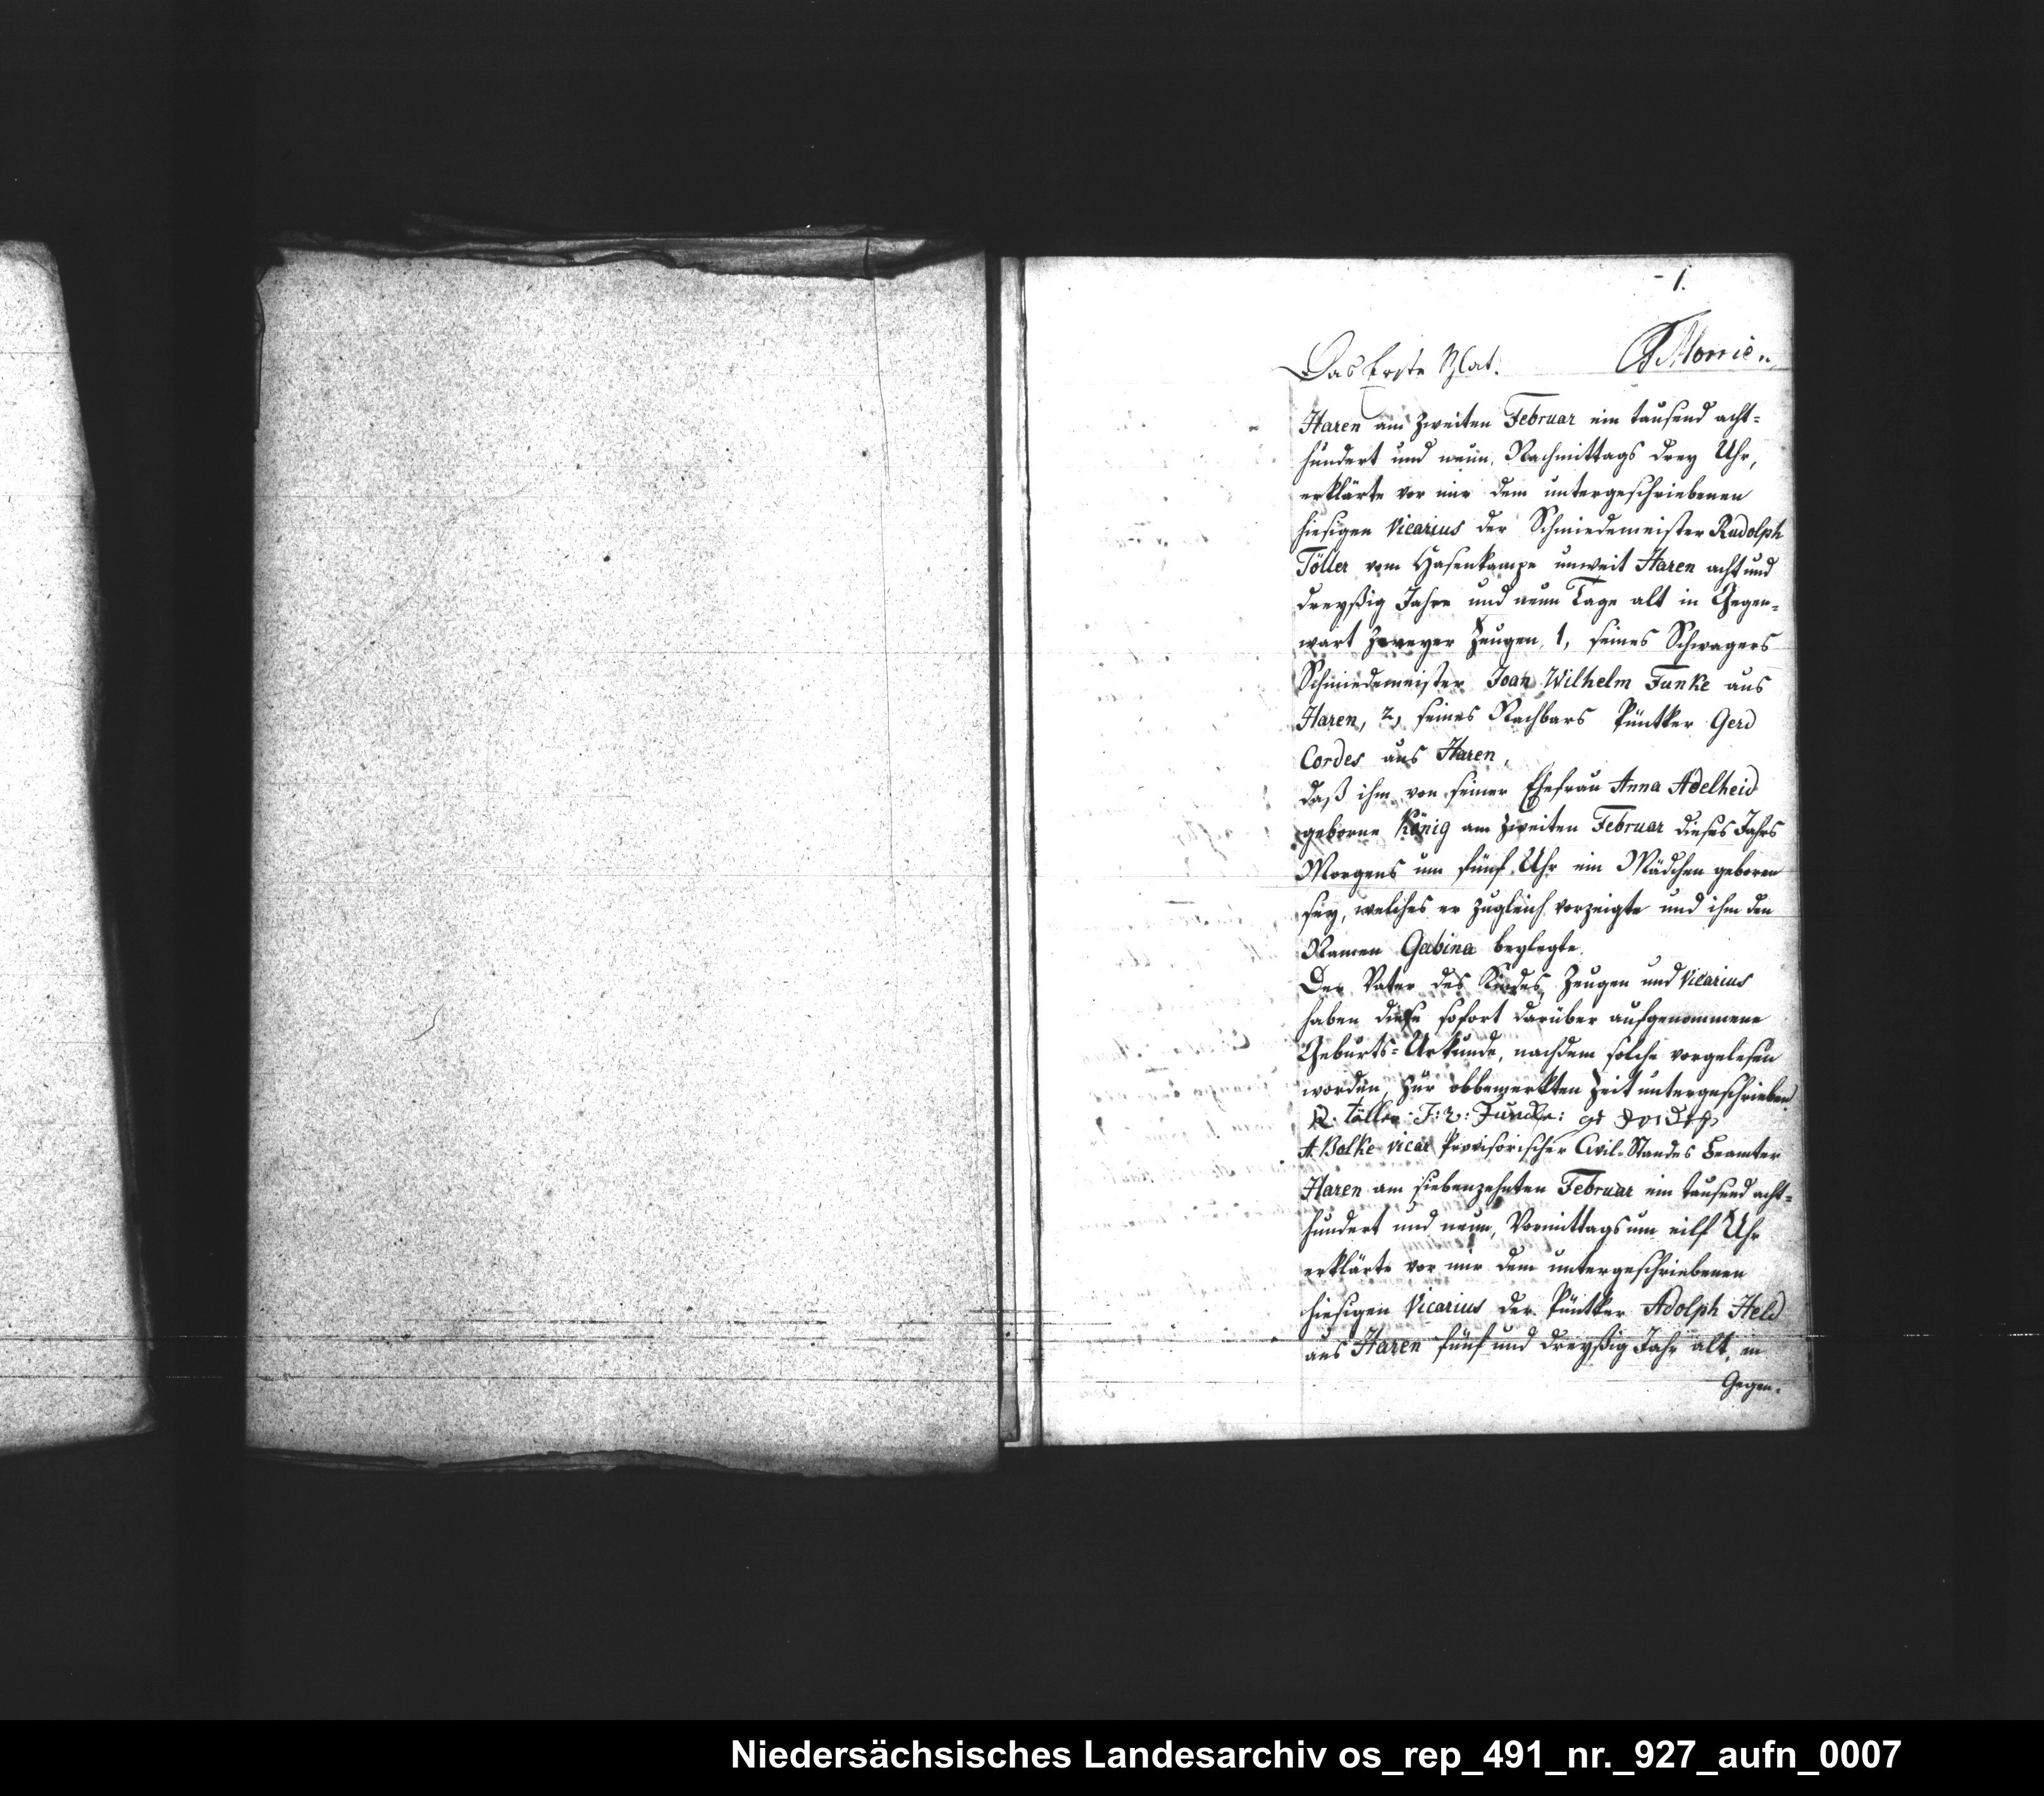 - 1.
Das Erste Blat.
Morrien
Haren am zweiten Februar ein tausend acht=
hundert und neun, Nachmittags drey Uhr,
erklärte vor mir dem untergeschriebenen
hiesigen Vicarius der Schmiedemeister Rudolph
Töller vom Hasenkampe unweit Haren acht und
dreyßig Jahre und neun Tage alt in Gegen=
wart zweyer Zeugen, 1, seines Schwagers
Schmiedemeister Joan Wilhelm Funke aus
Haren, 2, seines Nachbars Püntker Gerd
Cordes aus Haren,
daß ihm von seiner Ehefrau Anna Adelheid
geborne König am zweiten Februar dieses Jahrs
Morgens um fünf Uhr ein Mädchen geboren
sey, welches er zugleich vorzeigte und ihm den
Namen Gabina beylegte.
Der Vater des Kindes, Zeugen und Vicarius
haben diese sofort darüber aufgenommene
Geburts=Urkunde, nachdem solche vorgelesen
worden, zur obbemerkten Zeit untergeschrieben.
R. Töller J: W: Funcke:
A. Balke vicar Provisorischer Civil-Standes Beamter
Haren am siebenzehnten Februar ein tausend acht=
hundert und neun, Vormittags um eilf Uhr
erklärte vor mir dem untergeschriebenen
hiesigen Vicarius der Püntker Adolph Held
aus Haren fünf und dreyßig Jahr alt, in
Gegen=
Niedersächsisches Landesarchiv os_rep_491_nr._927_aufn_0007